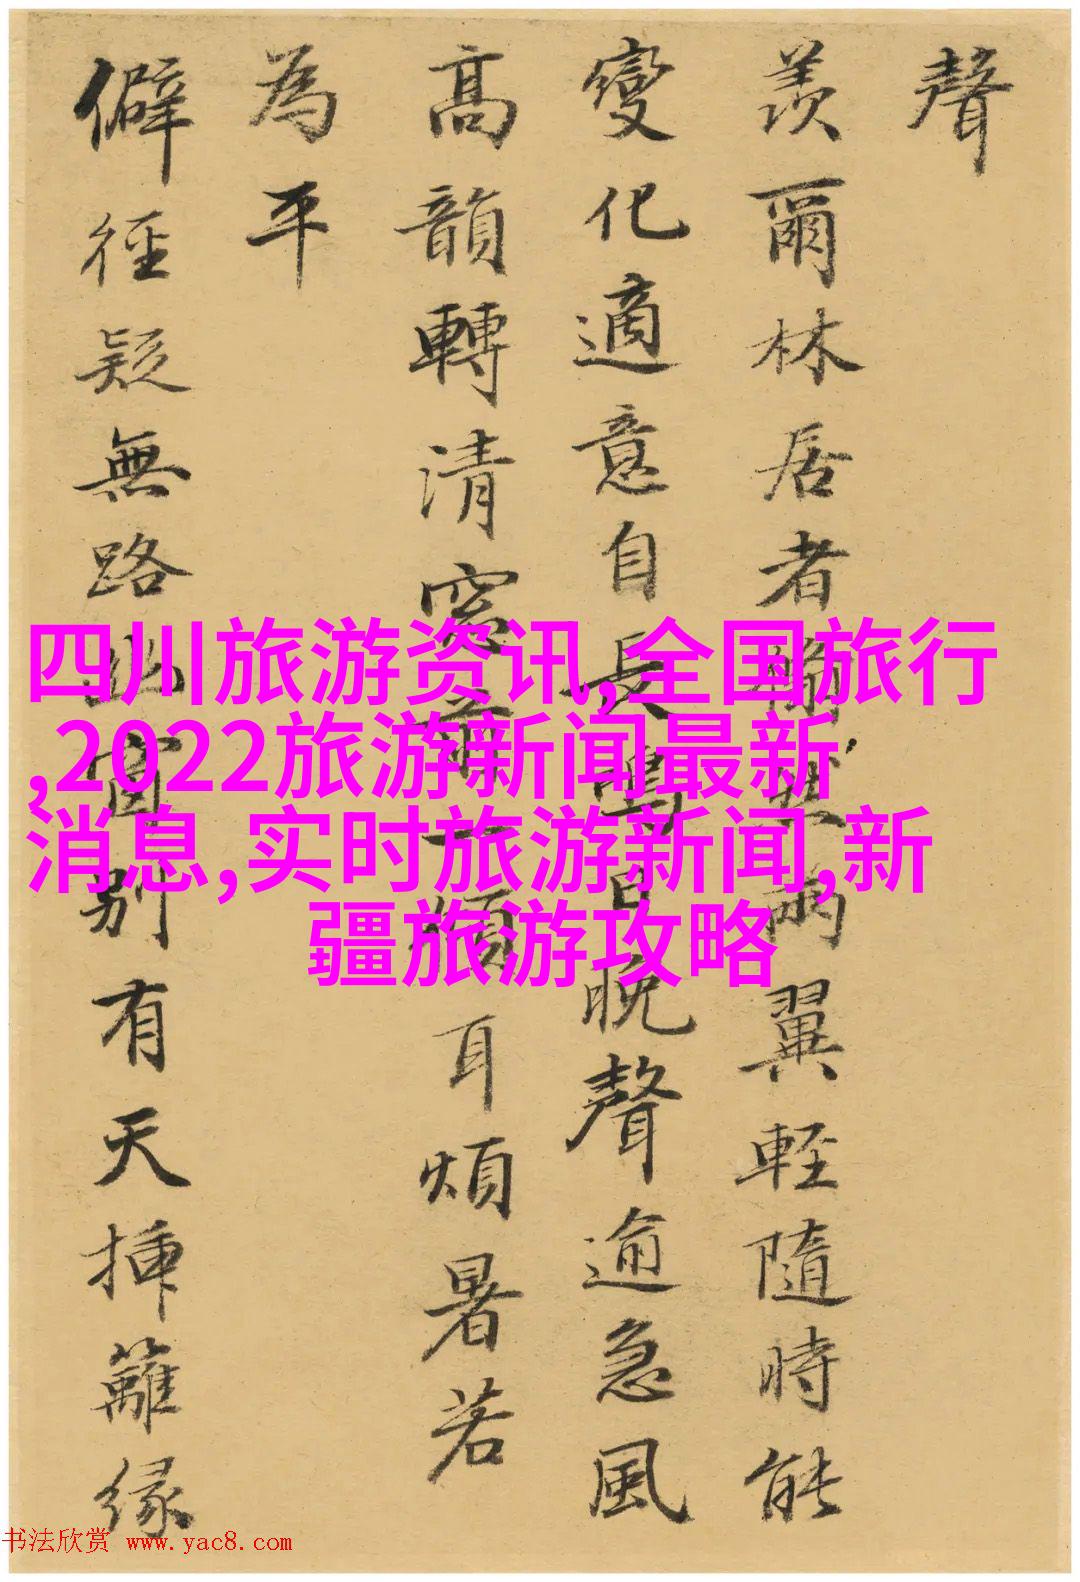 聲
羨爾林居者
兩翼輕隨時能
變化適意自長鳴
晚聲逾急風
高韻轉清窓前一
煩耳煩暑若
為平
僻徑疑無路
別有天揷籬緣
四川旅游资讯,全国旅行
,2022旅游新闻最新
消息,实时旅游新闻,新
疆旅游攻略
书法欣赏 www.yac8.com